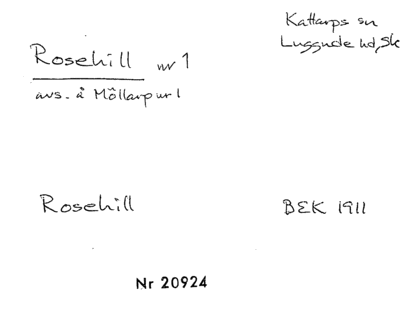 Kattarps sn
Luggude hd, Sk
Rosehill nr 1
avs. å Möllarp nr 1
Rosehill
BEK 1911
Nr 20924